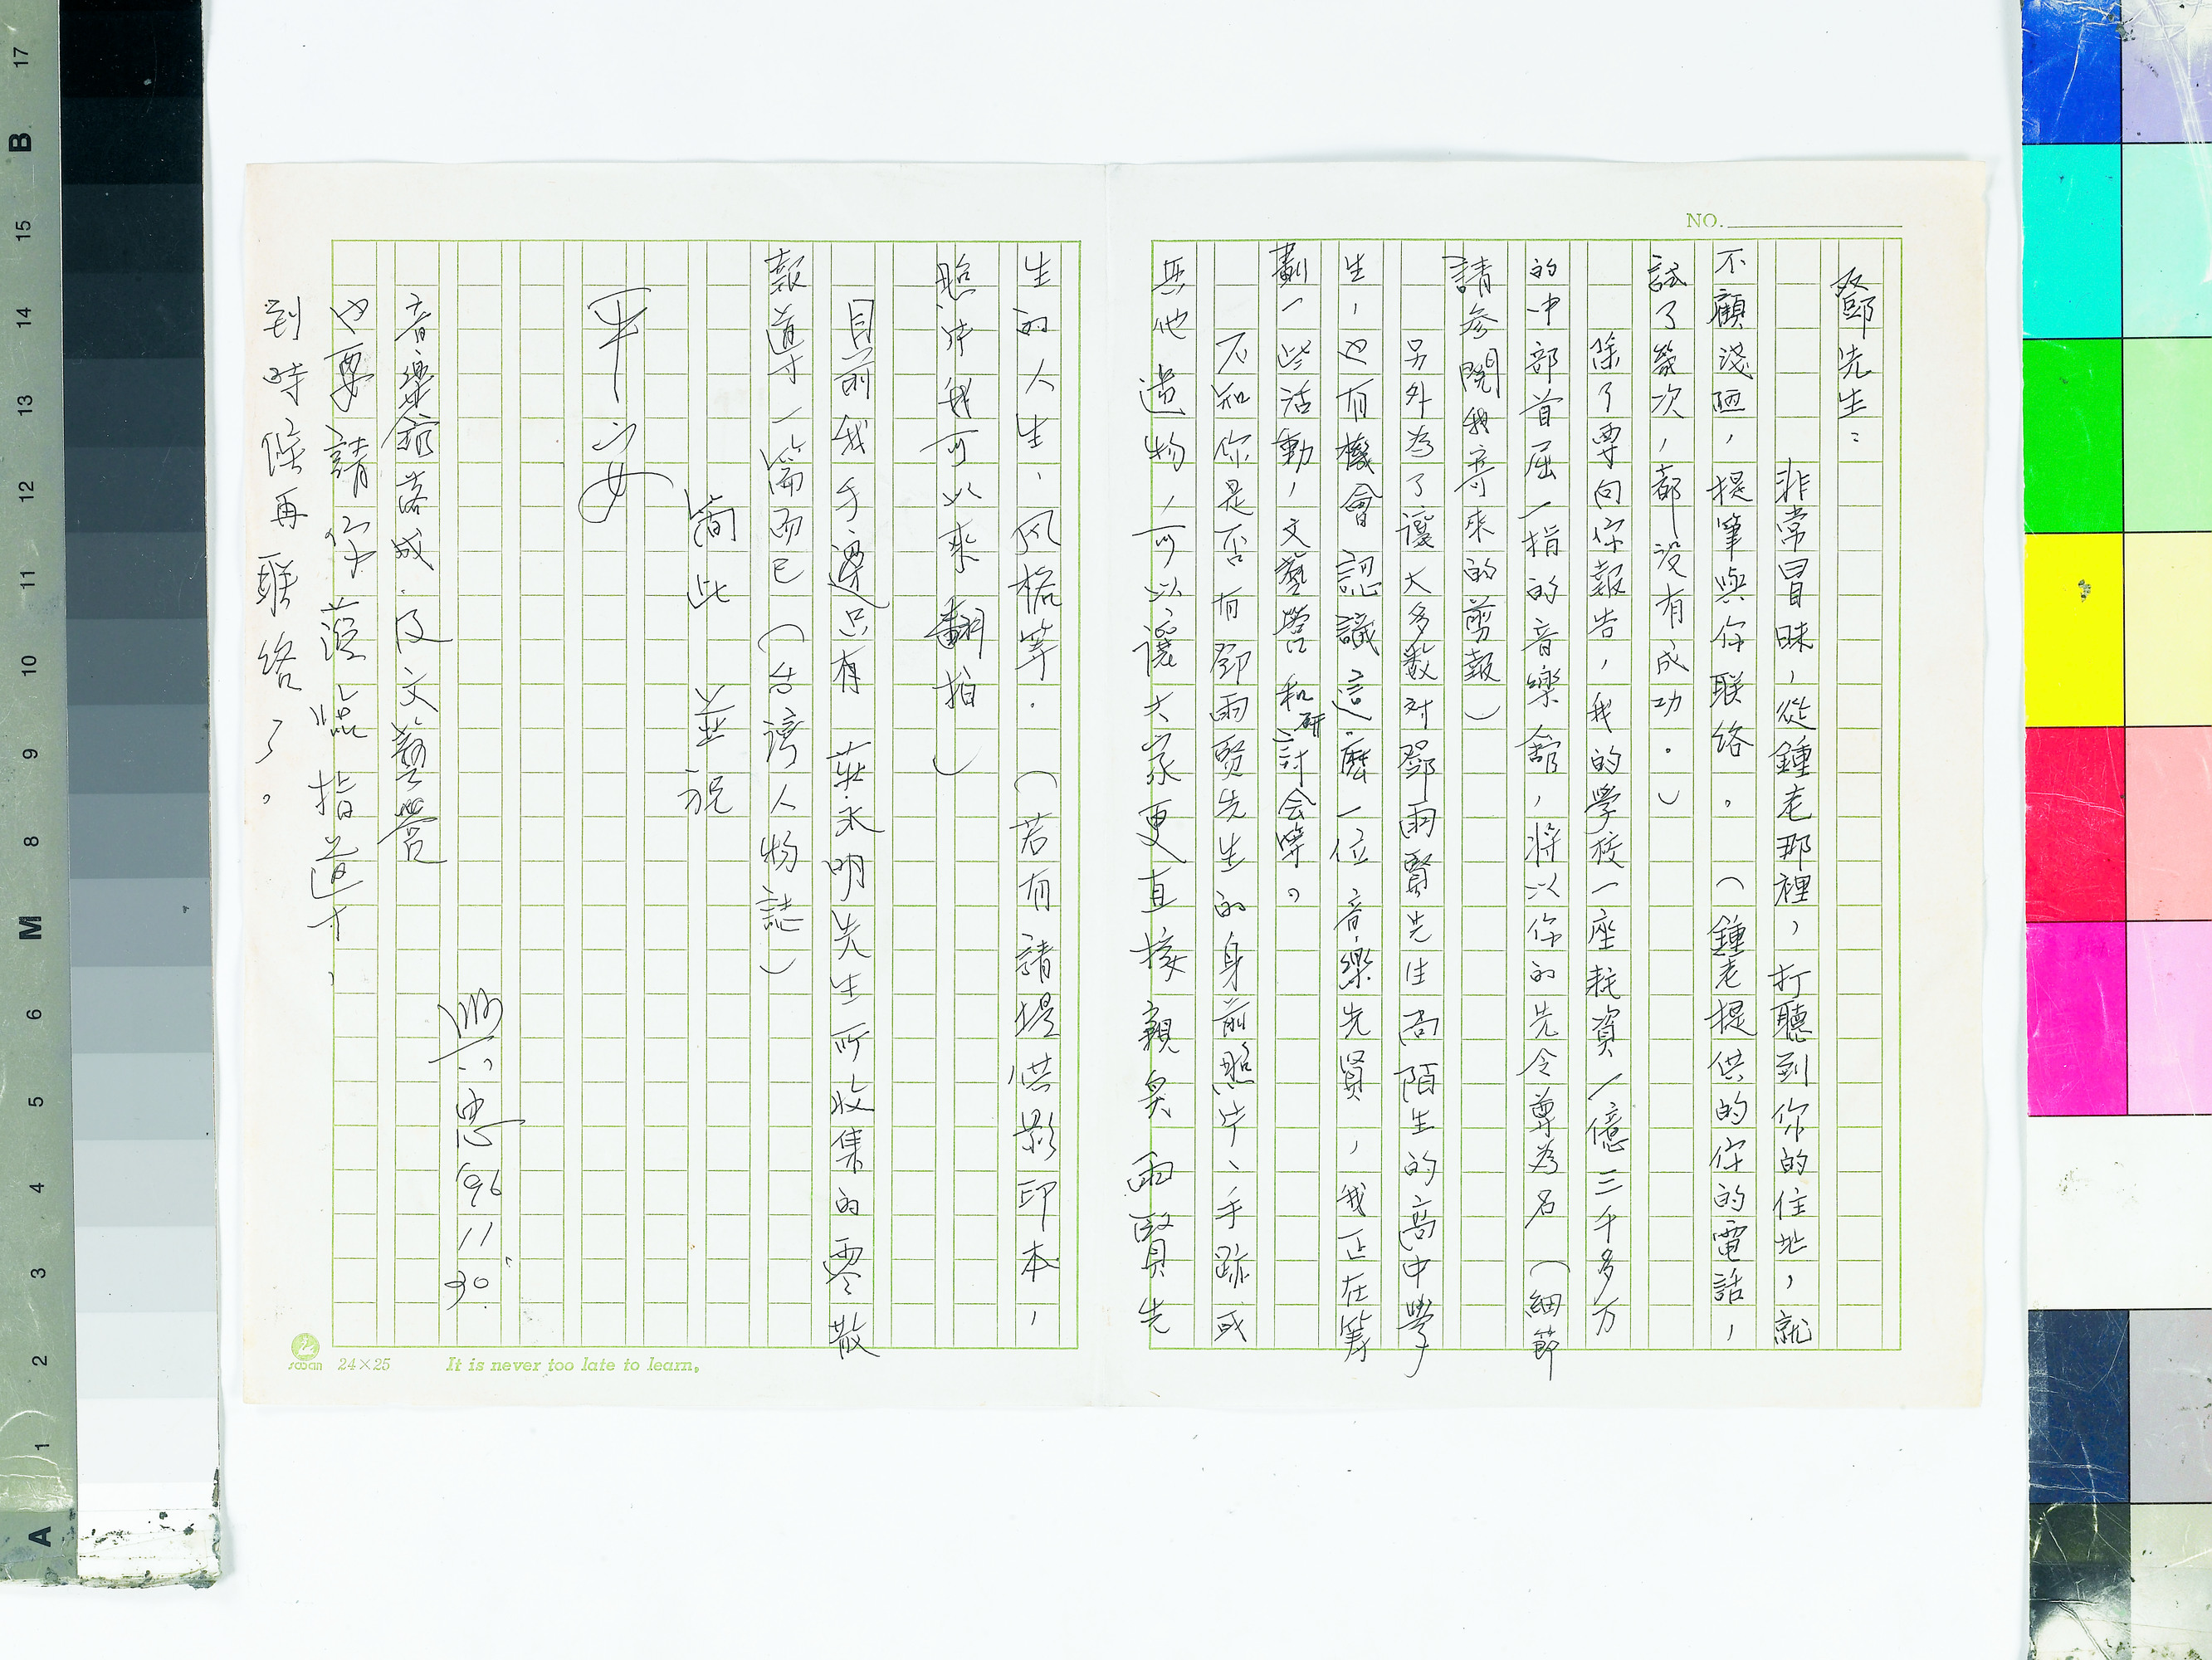 NO.
鄧先生：
非常冒昧，從鍾老那裡，打聽到你的住址，就
不顧淺陋，提筆與你联络。（鍾老提供的你的電話，
試了幾次，都没有成功。）
除了要向你報告，我的學校一座耗資一億三千多万
的中部首屈一指的音樂舘，將以你的先令尊為名（細節
請参閱我寄來的剪報）
另外為了讓大多数对鄧雨賢先生尚陌生的高中學
生，也有機會認識這麼一位音樂先賢，我正在籌
劃一些活動，文藝營和研討会等。
不知你是否有鄧雨賢先生的身前照片、手跡或
其他遺物，可以讓大家更直接親炙雨賢先
生的人生、风格等．（若有請提供影印本，
照片我可以來翻拍）
目前我手邊只有莊永明先生所收集的零散
報導一篇而已（台灣人物誌）
簡此 並祝
平安
'96 11 30.
音樂舘落成．及文藝營
也要請你蒞臨指導，
到時候再联络了。
sasan 24×25 It is never too late to learn.
17 B 15 14 13 12 11 10 9 8 M 6 5 4 3 2 1 A